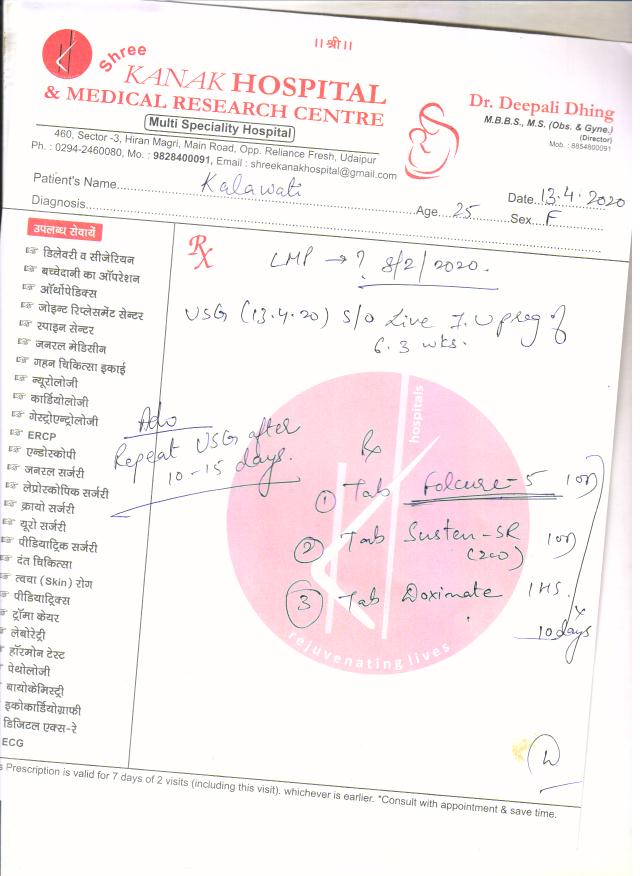 ।। श्री ।।
Shree
KANAK HOSPITAL
& MEDICAL RESEARCH CENTRE
Multi Speciality Hospital
460, Sector -3, Hiran Magri, Main Road, Opp. Reliance Fresh, Udaipur
Ph. : 0294-2460080, Mo. : 9828400091, Email : shreekanakhospital@gmail.com
Dr. Deepali Dhing
M.B.B.S., M.S. (Obs. & Gyne.)
(Director)
Mob. : 8854800091
Patient's Name Kalawati Date 13.4.2020
Diagnosis Age 25 Sex F
उपलब्ध सेवायें
डिलेवरी व सीजेरियन
बच्चेदानी का ऑपरेशन
ऑर्थोपेडिक्स
जोइन्ट रिप्लेसमेंट सेन्टर
स्पाइन सेन्टर
जनरल मेडिसीन
गहन चिकित्सा इकाई
न्यूरोलोजी
कार्डियोलोजी
गेस्ट्रोएन्ट्रोलोजी
ERCP
एन्डोस्कोपी
जनरल सर्जरी
लेप्रोस्कोपिक सर्जरी
क्रायो सर्जरी
यूरो सर्जरी
पीडियाट्रिक सर्जरी
दंत चिकित्सा
त्वचा (Skin) रोग
पीडियाट्रिक्स
ट्रॉमा केयर
लेबोरेट्री
हॉरमोन टेस्ट
पेथोलोजी
बायोकेमिस्ट्री
इकोकार्डियोग्राफी
डिजिटल एक्स-रे
ECG
Rx
LMP → ? 8/2/2020.
USG (13.4.20) S/O Live I.U preg of
6.3 wks.
Adv
Repeat USG after
10-15 days.
Rx
① Tab Folcure-5 1 OD
② Tab Susten-SR 1 OD
(200)
③ Tab Doximate 1 HS.
x
10 days
hospitals
rejuvenating lives
s Prescription is valid for 7 days of 2 visits (including this visit). whichever is earlier. "Consult with appointment & save time.